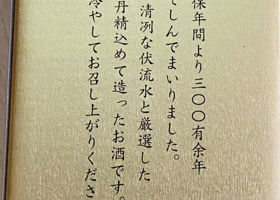 保年間より三〇〇有余年
てしんでまいりました。
清冽な伏流水と厳選した
丹精込めて造ったお酒です。
冷やしてお召し上がりくださ